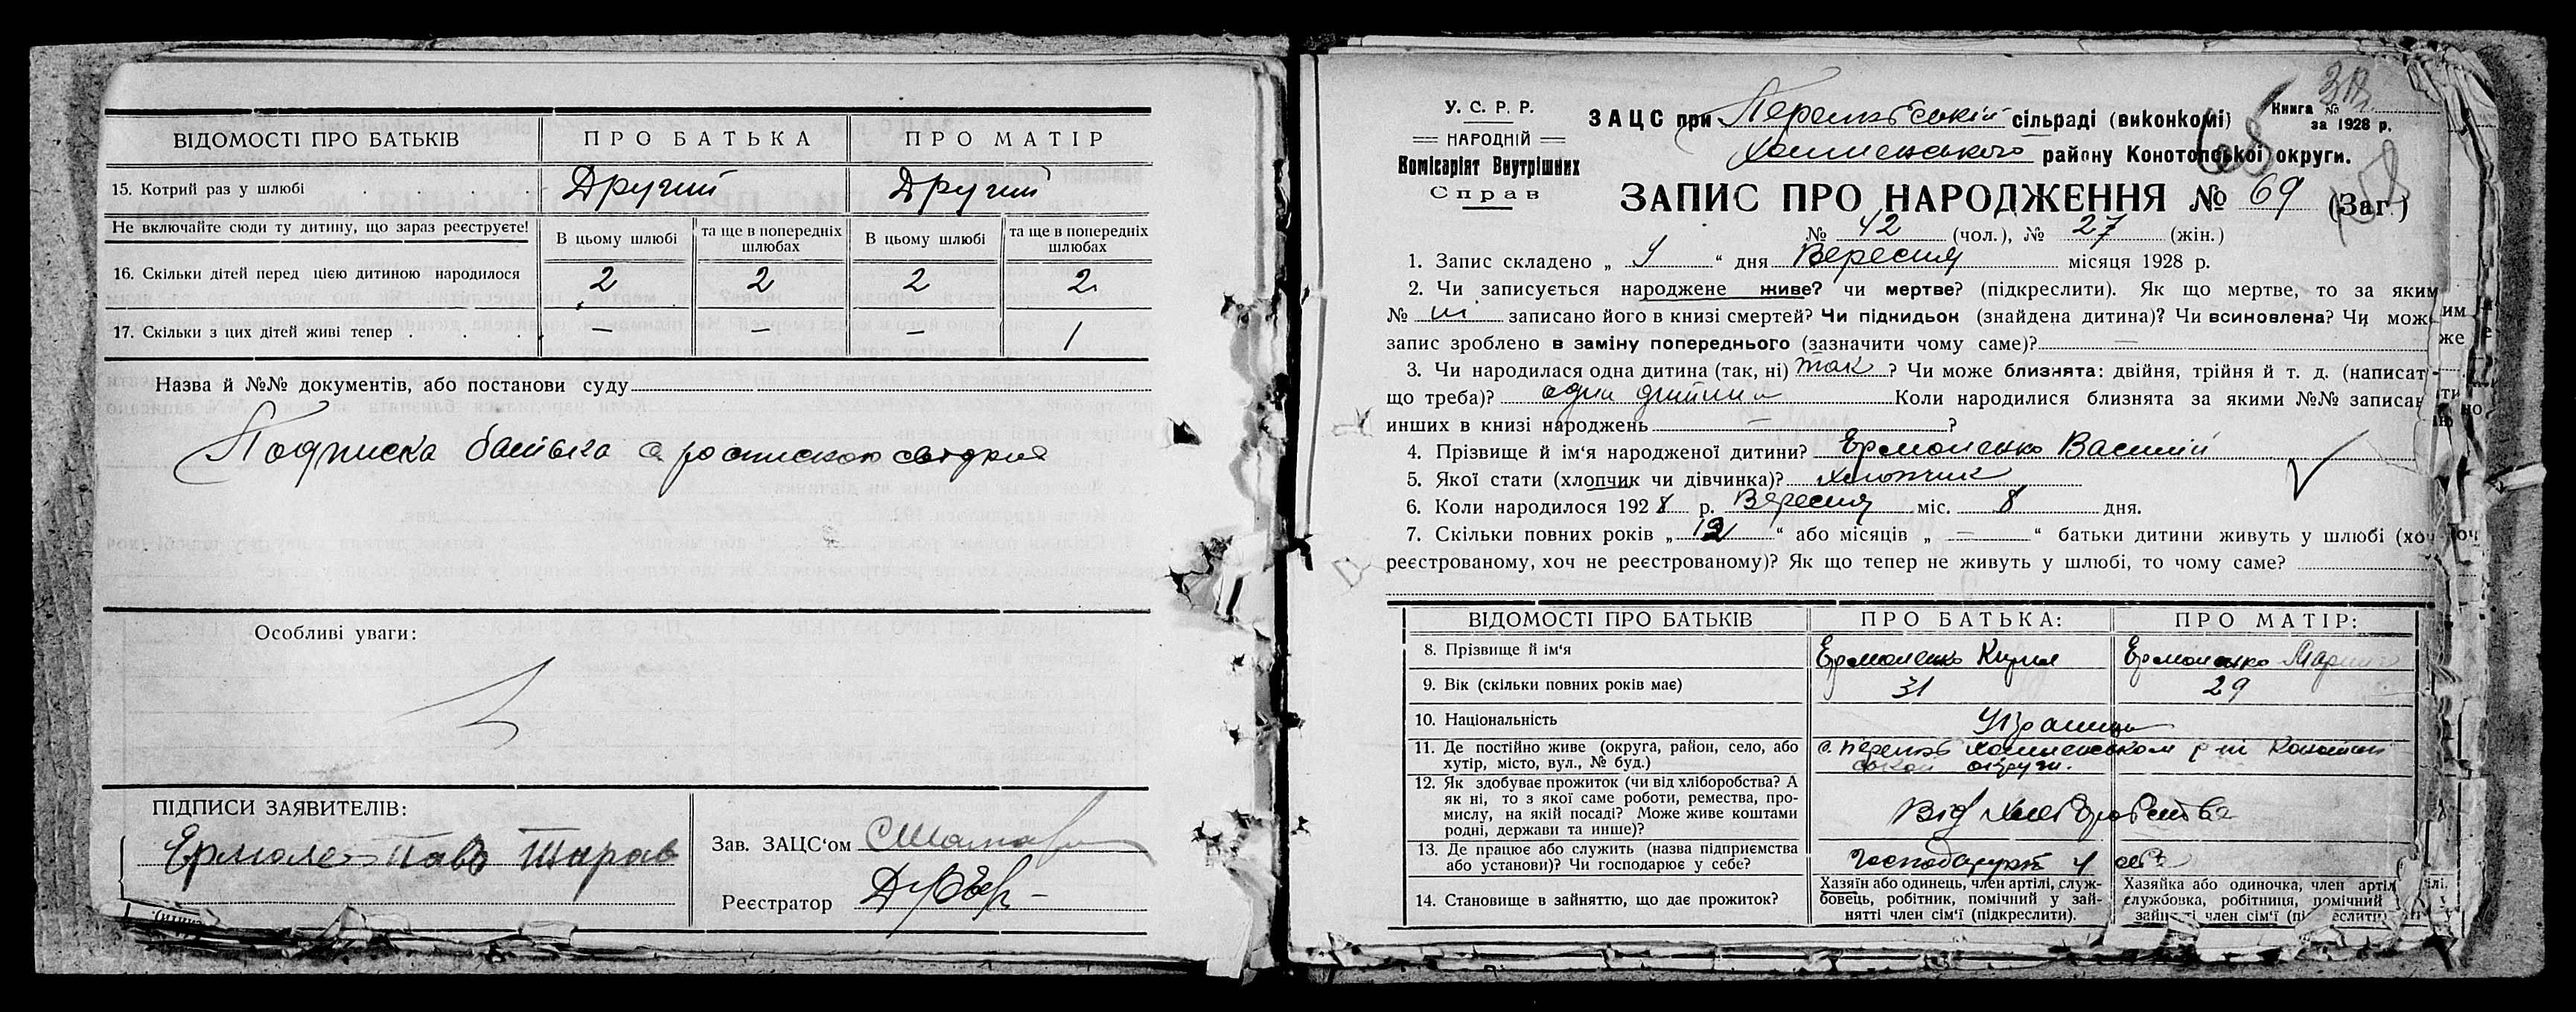 ВІДОМОСТІ ПРО БАТЬКІВ ПРО БАТЬКА ПРО МАТІР
15. Котрий раз у шлюбі . . . Другий Другий
Не включайте сюди ту дитину, що зараз реєструєте!
В цьому шлюбі та ще в попередніх шлюбах В цьому шлюбі та ще в попередніх шлюбах
16. Скільки дітей перед цією дитиною народилося 2 2 2 2
17. Скільки з цих дітей живі тепер . . . — — — 1
Назва й №№ документів, або постанови суду
Подписка батька с роспискою свідкив
Особливі уваги:
ПІДПИСИ ЗАЯВИТЕЛІВ:
Зав. ЗАЦС'ом
Реєстратор
У. С. Р. Р.
НАРОДНІЙ
Комісаріят Внутрішніх
Справ
ЗАЦС при сільраді (виконкомі)
району Конотопської округи.
Книга №
за 1928 р.
68
ЗАПИС ПРО НАРОДЖЕННЯ № 69 (Заг.)
№ 42 (чол.), № 27 (жін.)
1. Запис складено „ “ дня Вересня місяця 1928 р.
2. Чи записується народжене живе? чи мертве? (підкреслити). Як що мертве, то за яким
№ записано його в книзі смертей? Чи підкидьок (знайдена дитина)? Чи всиновлена? Чи може
запис зроблено в заміну попереднього (зазначити чому саме)? —
3. Чи народилася одна дитина (так, ні) так ? Чи може близнята: двійня, трійня й т. д. (написати
що треба)? одна дитина Коли народилися близнята за якими №№ записано
инших в книзі народжень — ?
4. Прізвище й ім'я народженої дитини? Ермоленко Василий
5. Якої стати (хлопчик чи дівчинка)? хлопчик
6. Коли народилося 1928 р. Вересня міс. 8 дня.
7. Скільки повних років „ “ або місяців „ — “ батьки дитини живуть у шлюбі (хоч
реєстрованому, хоч не реєстрованому)? Як що тепер не живуть у шлюбі, то чому саме?
ВІДОМОСТІ ПРО БАТЬКІВ ПРО БАТЬКА: ПРО МАТІР:
8. Прізвище й ім'я Ермоленко Кирил Ермоленко
9. Вік (скільки повних років має) 31 29
10. Національність
11. Де постійно живе (округа, район, село, або
хутір, місто, вул., № буд.)
12. Як здобуває прожиток (чи від хліборобства? А
як ні, то з якої саме роботи, ремества, про-
мислу, на якій посаді? Може живе коштами
родні, держави та инше)?
Від хлеборобства
13. Де працює або служить (назва підприємства
або установи)? Чи господарює у себе?
Господарює у себе
14. Становище в зайняттю, що дає прожиток?
Хазяїн або одинець, член артілі, служ-
бовець, робітник, помічний у зай-
нятті член сім'ї (підкреслити).
Хазяйка або одиночка, член артілі,
службовка, робітниця, помічний